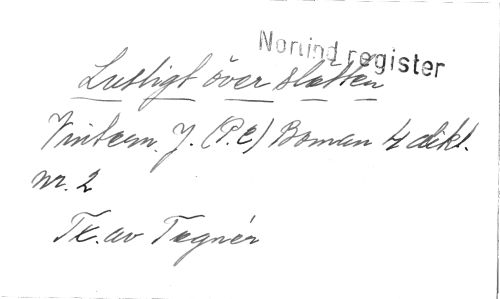 Norlind register
Lustigt över slätten
Vintern. J. (P.E) Boman 4 dikt.
nr. 2
Tx. av Tegnér